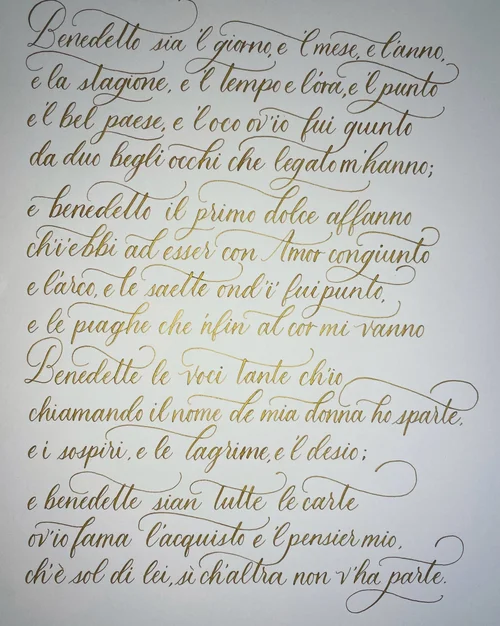 Benedetto sia 'l giorno, e 'l mese, e l'anno,
e la stagione, e 'l tempo e l'ora, e 'l punto
e 'l bel paese, e 'l loco ov'io fui giunto
da duo begli occhi che legato m'hanno;
e benedetto il primo dolce affanno
ch'i' ebbi ad esser con Amor congiunto
e l'arco, e le saette ond'i' fui punto,
e le piaghe che 'nfin al cor mi vanno
Benedette le voci tante ch'io
chiamando il nome de mia donna ho sparte,
e i sospiri, e le lagrime, e 'l desio;
e benedette sian tutte le carte
ov'io fama l'acquisto e 'l pensier mio,
ch'è sol di lei, sì ch'altra non v'ha parte.